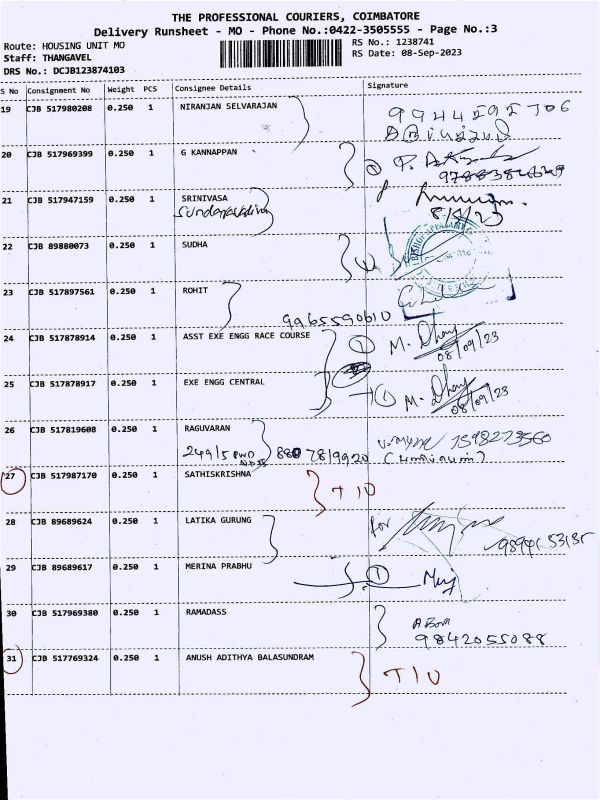 THE PROFESSIONAL COURIERS, COIMBATORE
Delivery Runsheet - MO - Phone No.:0422-3505555 - Page No.:3
Route: HOUSING UNIT MO
RS No.: 1238741
Staff: THANGAVEL
RS Date: 08-Sep-2023
DRS No.: DCJB123874103
S No Consignment No Weight PCS Consignee Details Signature
19 CJB 517980208 0.250 1 NIRANJAN SELVARAJAN
20 CJB 517969399 0.250 1 G KANNAPPAN
21 CJB 517947159 0.250 1 SRINIVASA
8/9/23
22 CJB 89880073 0.250 1 SUDHA
23 CJB 517897561 0.250 1 ROHIT
9965590610
24 CJB 517878914 0.250 1 ASST EXE ENGG RACE COURSE 1 M. Dhay
08/09/23
25 CJB 517878917 0.250 1 EXE ENGG CENTRAL 1 M. Dhay
08/09/23
26 CJB 517819608 0.250 1 RAGUVARAN
249/5 PWD 7598273560
27 CJB 517987170 0.250 1 SATHISKRISHNA T I U
28 CJB 89689624 0.250 1 LATIKA GURUNG for
29 CJB 89689617 0.250 1 MERINA PRABHU 1
30 CJB 517969380 0.250 1 RAMADASS
9842055088
31 CJB 517769324 0.250 1 ANUSH ADITHYA BALASUNDRAM T I U